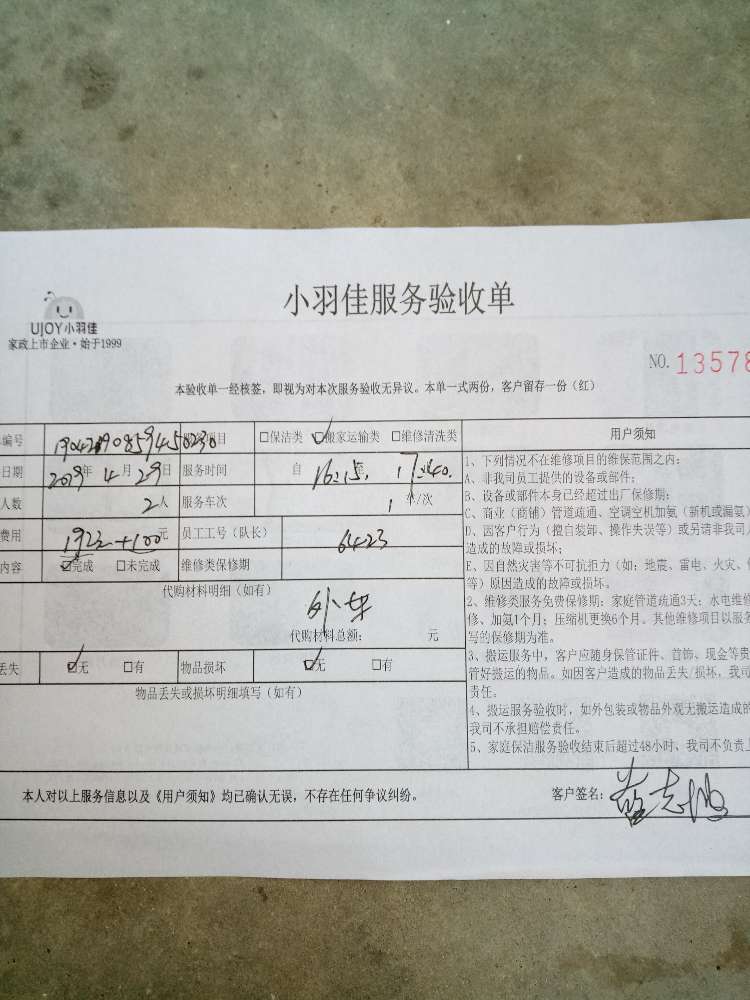 小羽佳服务验收单
UJOY小羽佳
家政上市企业·始于1999
NO. 13578
本验收单一经核签，即视为对本次服务验收无异议。本单一式两份，客户留存一份（红）
编号 项目 □保洁类 ☑搬家运输类 □维修清洗类
日期 2019年4月29日 服务时间 自 16:15至 17:40
人数 2人 服务车次 1 车/次
费用 1922+100元 员工工号（队长） 6423
内容 ☑完成 □未完成 维修类保修期
代购材料明细（如有）
代购材料总额： 元
丢失 ☑无 □有 物品损坏 ☑无 □有
物品丢失或损坏明细填写（如有）
用户须知
1、下列情况不在维修项目的维保范围之内：
A、非我司员工提供的设备或部件；
B、设备或部件本身已经超过出厂保修期；
C、商业（商铺）管道疏通、空调空机加氨（新机或漏氨）
D、因客户行为（擅自装卸、操作失误等）或另请非我司人
造成的故障或损坏；
E、因自然灾害等不可抗拒力（如：地震、雷电、火灾、
等）原因造成的故障或损坏。
2、维修类服务免费保修期：家庭管道疏通3天；水电维修
修、加氨1个月；压缩机更换6个月。其他维修项目以服务
写的保修期为准。
3、搬运服务中，客户应随身保管证件、首饰、现金等贵
管好搬运的物品。如因客户造成的物品丢失/损坏，我司
责任。
4、搬运服务验收时，如外包装或物品外观无搬运造成的
我司不承担赔偿责任。
5、家庭保洁服务验收结束后超过48小时、我司不负责上
本人对以上服务信息以及《用户须知》均已确认无误，不存在任何争议纠纷。 客户签名：